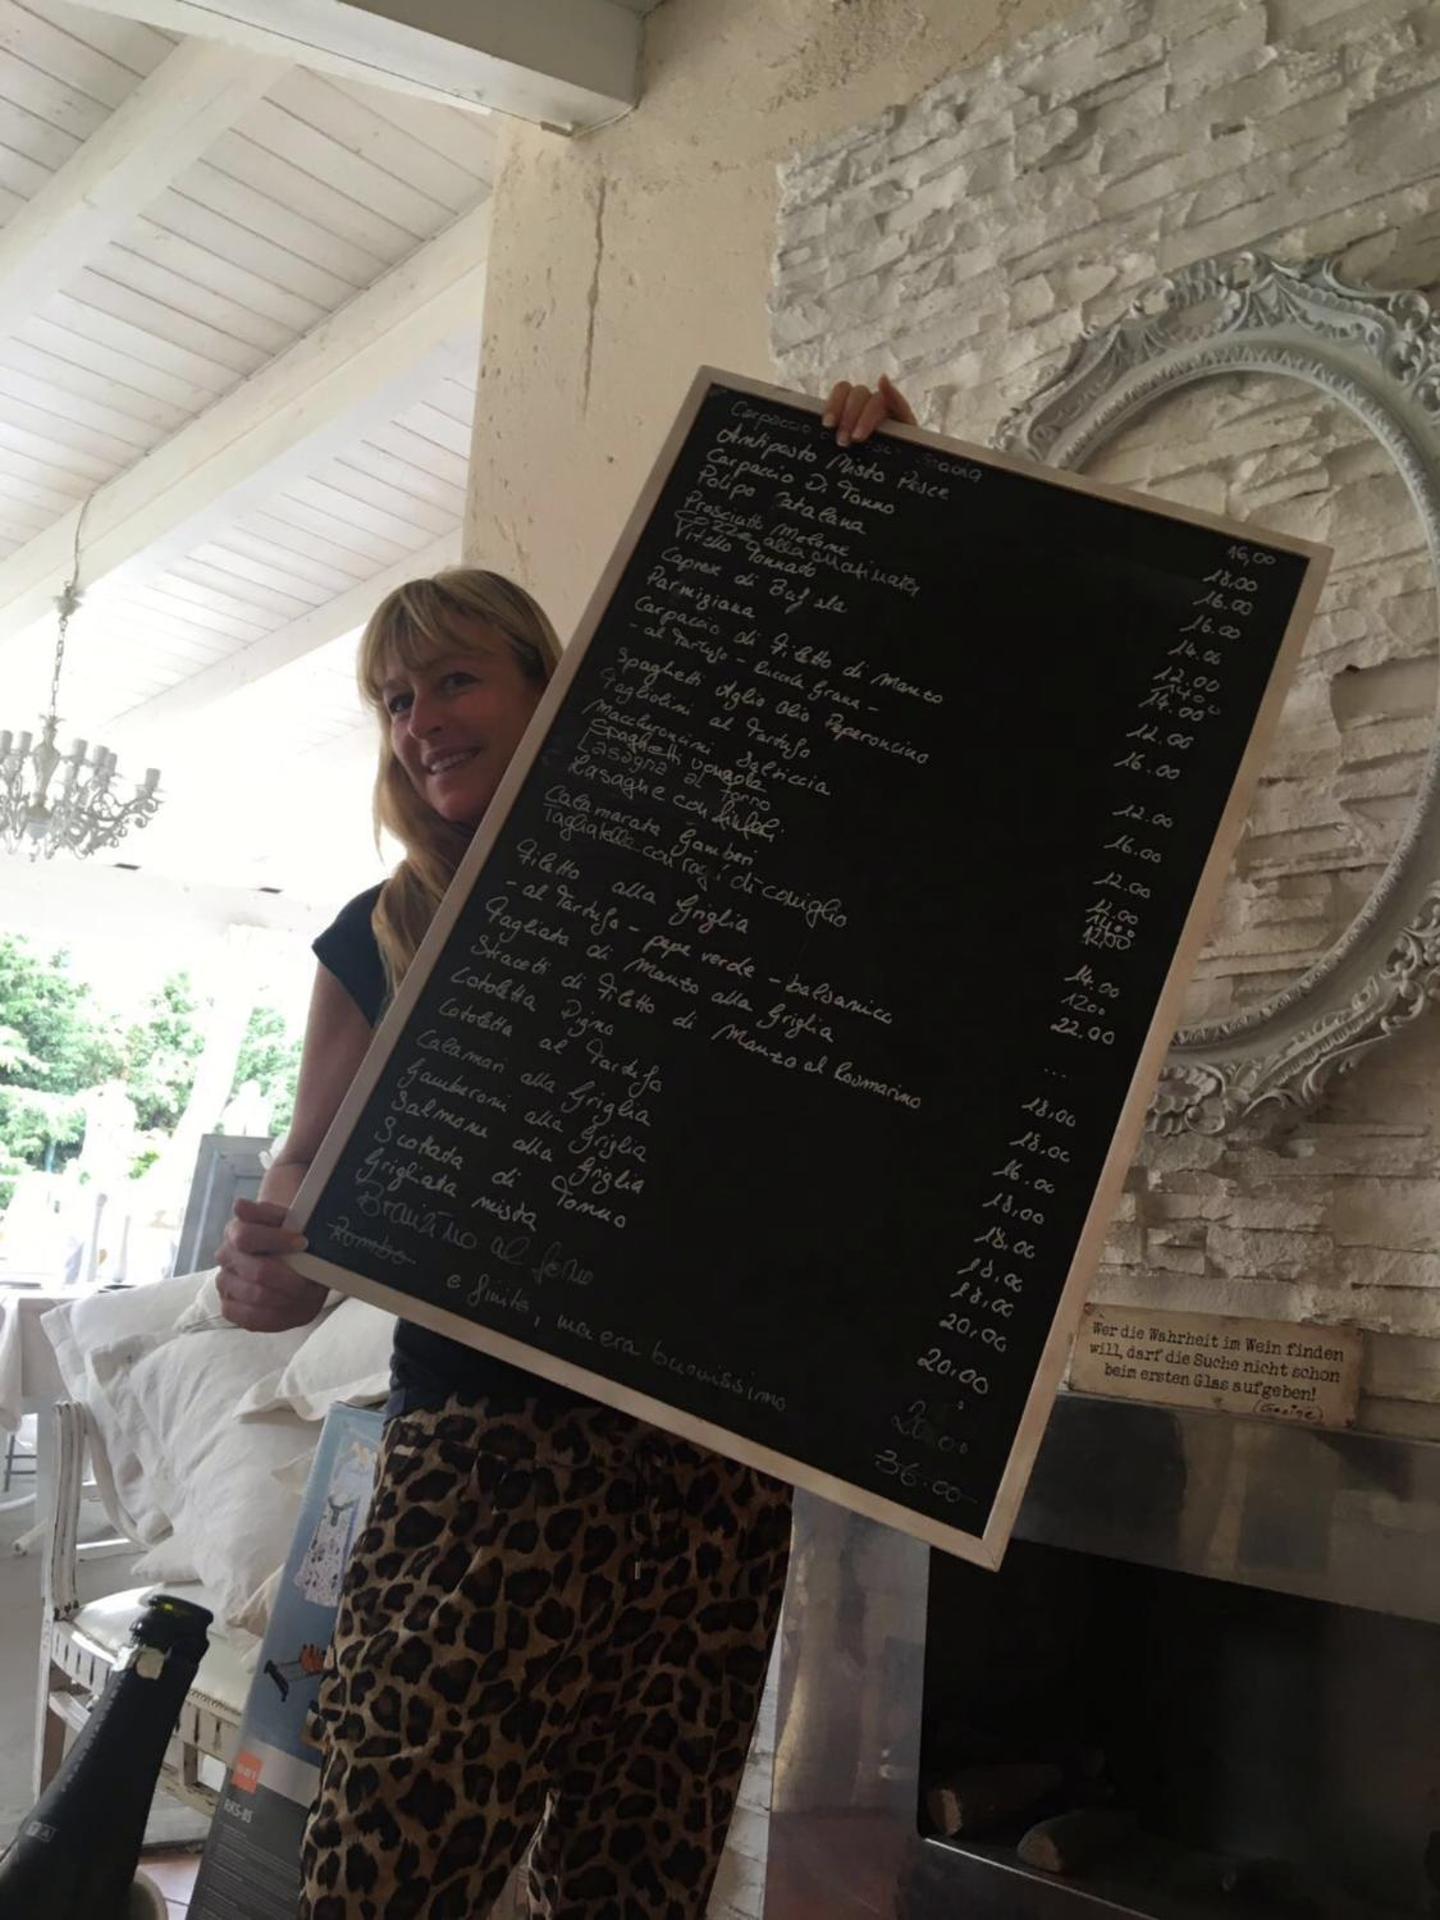 Carpaccio
Antipasto Misto Pesce
Carpaccio Di Tonno
Polipo Catalana
Prosciutto Melone
Cozze alla Marinara
Vitello Tonnato
Caprese di Bufala
Parmigiana
Carpaccio di Filetto di Manzo
- al Tartufo - Rucola Grana -
Spaghetti Aglio Olio Peperoncino
Tagliolini al Tartufo
Maccheroncini Salsiccia
Spaghetti vongole
Lasagne al Forno
Lasagne con
Calamarata Gamberi
Tagliatelle con ragù di coniglio
Filetto alla Griglia
- al Tartufo - pepe verde - balsamico
Tagliata di Manzo alla Griglia
Stracetti di Filetto di Manzo al Rosmarino
Cotoletta Pigna
Cotoletta al Tartufo
Calamari alla Griglia
Gamberoni alla Griglia
Salmone alla Griglia
Scottata di Tonno
Grigliata mista
Branzino al forno
Rombo
e finito, ma era buonissimo
16,00
18.00
16.00
16.00
14.00
12.00
14.00
14.00
12.00
16.00
12.00
16.00
12.00
12.00
14.00
1200
22.00
...
18,00
18,00
16.00
18,00
18,00
18,00
18,00
20,00
20,00
36.00
Wer die Wahrheit im Wein finden
will, darf die Suche nicht schon
beim ersten Glas aufgeben!
RKS-85